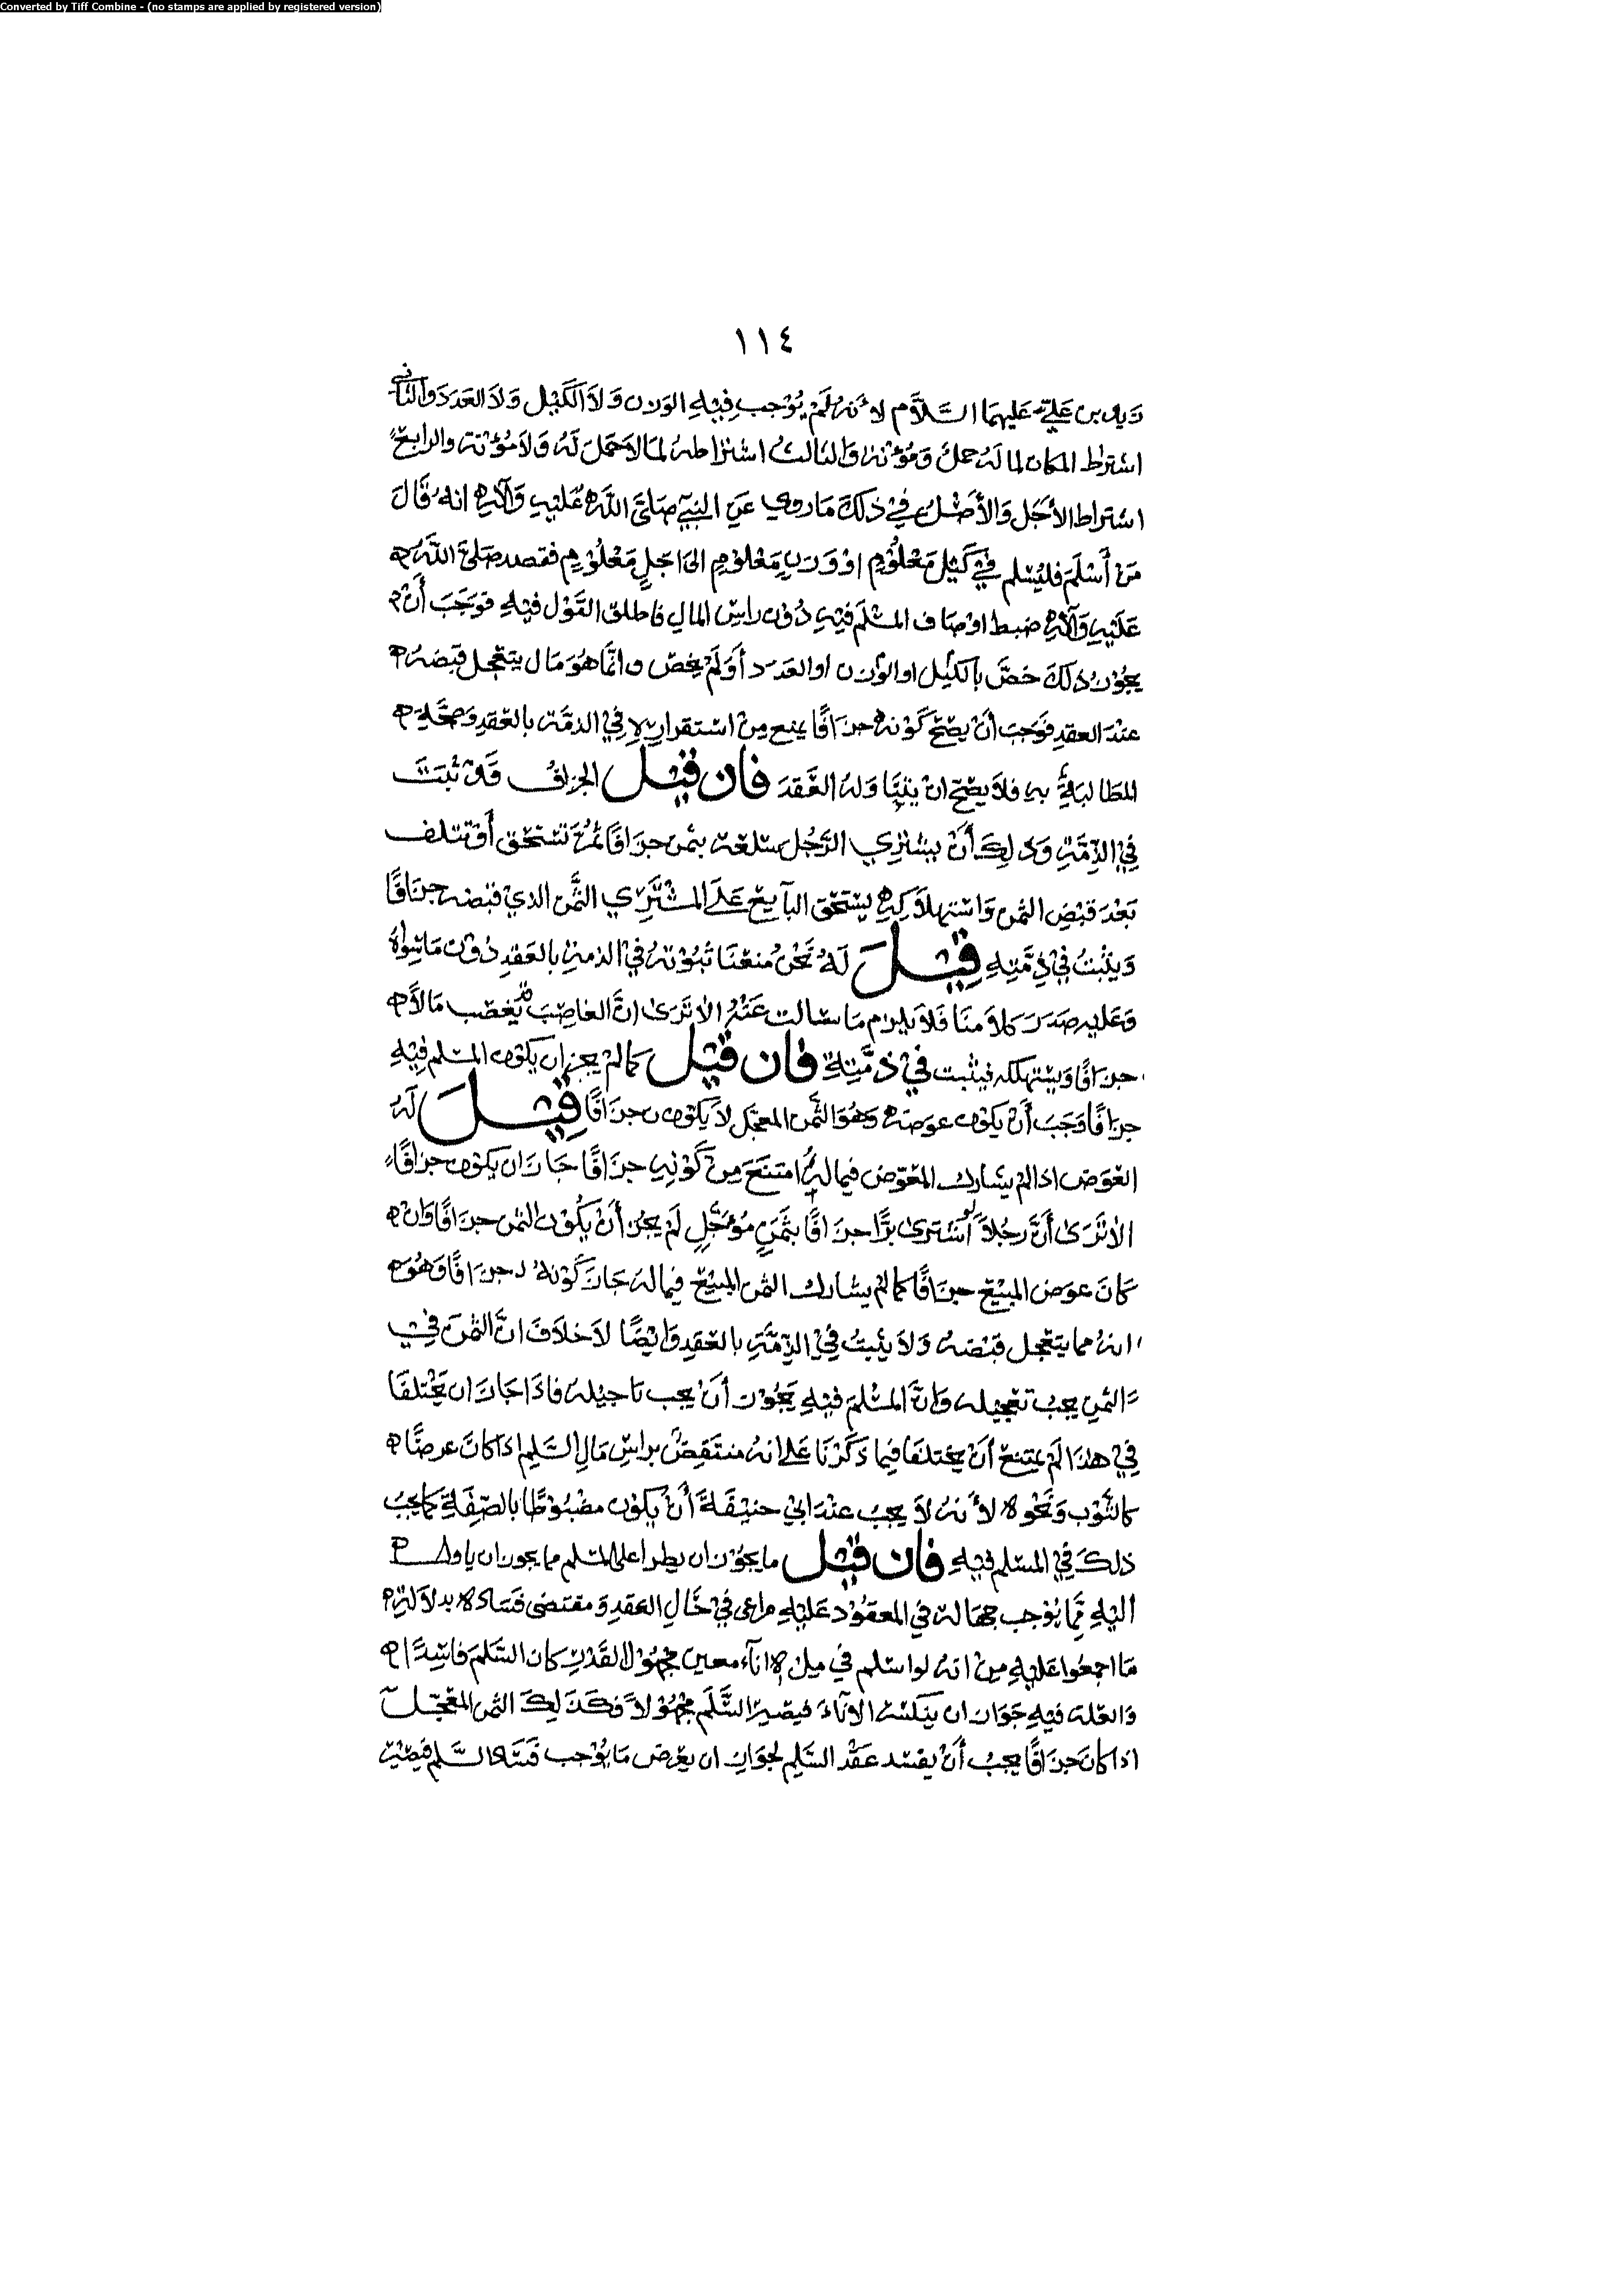 Converted by Tiff Combine - (no stamps are applied by registered version)
١١٤
زيد بن عَليّ عَليهمَا السَّلَام لأنهُ لَمْ يُوْجب فِيْهِ الوزن وَلاَ الكَيْل وَلاَ العَدَدَ والثاني
اشتراط المكان لما لهُ حملٌ وَمُؤنة وَالثالثُ اشتراطهُ لمالاحَمْلَ لَهُ وَلاَمُؤنة والرابعُ
اشتراط الأجَل وَالأَصْلُ فيْ ذلكَ مَاروي عَنِ النبيّ صَلَّى اللَّهُ عَليْهِ وَآلِهِ انهُ قَالَ
مَنْ أَسْلَمَ فليُسْلم فيْ كَيْلٍ مَعْلُوْمٍ اوْ وَزنٍ مَعْلُوْمٍ الى اجَلٍ مَعْلُوْمٍ فقصد صَلَّى اللَّهُ
عَلَيْهِ وَآلِهِ ضبط اوْصَاف المسْلَم فيْهِ دُوْن راسِ المالِ فاطلق القَوْل فيْهِ فوَجَبَ أَنْ
يجُوْز ذلكَ خصَّ بالكيْل او الوَزن او العَدَد أَوْ لَمْ يخص وانَّما هُوَ مَال يتعَجل قبضهُ
عنْدَ العقدِ فَوَجَبَ أَنْ يصحّ كَوْنه جزَافًا يمنع مِنْ استقرارهِ فِيْ الذمَّة بالعَقدِ وَصحَّة
المطَالبَةِ بهِ فلاَ يصحّ انْ يتناوَلهُ العَقدَ فَان قيْل الجزاف قَدْ ثبَتَ
فِيْ الذِّمَّةِ وَذلِكَ أَنْ يشْتَرِي الرَّجُل سلعَة بثمن جزَافًا ثُمَّ تسْتحَق أوْ تتلف
بَعْدَ قبْضِ الثمن وَاسْتهلاَكِهِ يسْتحَق البَآيع عَلَى المشْتَرِي الثَّمن الذيْ قبضه جزَافًا
وَيثبْتُ فيْ ذِمَّتِهِ قِيْلَ لَهُ نَحْنُ منعْنَا ثُبُوْتهُ فيْ الذمةِ بالعَقدِ دُوْن مَاسِوَاهُ
وَعَليْهِ صَدَرَ كلاَمنَا فَلاَ يلزم مَا سَالت عَنْهُ الاترَى انَّ الغاصِبَ يَغصب مَالاً
جزَافًا وَيسْتهلكه فيثبت فيْ ذمَّتِهِ فَان قِيْل كما لمْ يجز ان يكوْن المسْلم فِيْهِ
جزَافًا وَجَبَ أَنْ يكوْن عوضهُ وَهُوَ الثَّمن المعجَّل لاَ يكوْن جزَافًا قِيْلَ لَهُ
العَوَض اذا لمْ يشَارك المعَوّض فيما لهُ امتنَعَ مِنْ كَوْنِهِ جزَافًا جَازَ ان يكوْن جزَافًا
الاترَى أَنَّ رجُلاً لو اشترى بُرًّا جزَافًا بثَمَنٍ مُؤَجَّلٍ لَمْ يجُز أَنْ يَكُوْن الثمن جزَافًا وَانْ
كَانَ عوَض المبيْع جزَافًا كما لمْ يشارك الثمن المبيْع فيما لهُ جَازَ كَوْنهُ جزَافًا وَهُوَ
انهُ مما يتعَجل قبْضهُ وَلاَ يثبتُ فِيْ الذِّمَّةِ بالعَقدِ وَايْضًا لاَخلاَفَ انَّ الثمَنَ فيْ
الثمنِ يجب تعْجيله وَانَّ المسْلَمَ فيْهِ يجُوْز أَنْ يجب تاجيْلهُ فاذَا جَازَ ان يخْتلفَا
فِيْ هذَا لَمْ يمتنعْ أَنْ يخْتلفا فِيما ذكَرْنَا عَلى انهُ منتَقِضٌ براسِ مَالِ السَّلمِ اذا كَانَ عرضًا
كالثَّوْب وَنَحْوهِ لأَنهُ لاَ يجبُ عنْدَ ابيْ حنيْفَةَ أَنْ يَكوْن مضْبُوْطًا بالصِّفَةِ كمَا يجبُ
ذلكَ فيْ المسْلم فيْهِ فَان قيْل مايجُوْز ان يطرا على السَّلم مما يجوز ان ياول
اليْهِ مِمَّا يُوْجب جهَالة فيْ المعقُوْد عَليْهِ مراعى فيْ حَالِ العَقدِ وَمقتضى فسَاده بدلاَلةِ
مَا اجمعُوْا عَليْهِ مِنْ انهُ لو اسْلم فيْ مِلْ اناَء معين مجهُوْل القَدْرِ كان السَّلمَ فاسِدًا
وَالعلة فيْهِ جَوَاز ان ينكسْر الانَاءَ فيصيْر السَّلَم مجهُوْلاً فكَذَلِكَ الثمن المعَجّل
اذا كانَ جزَافًا يجبُ أَنْ يفسْد عَقدْ السَّلمِ لجوَازِ ان يعْرض مَا يُوْجب فسَاد السَّلم فيصيْر